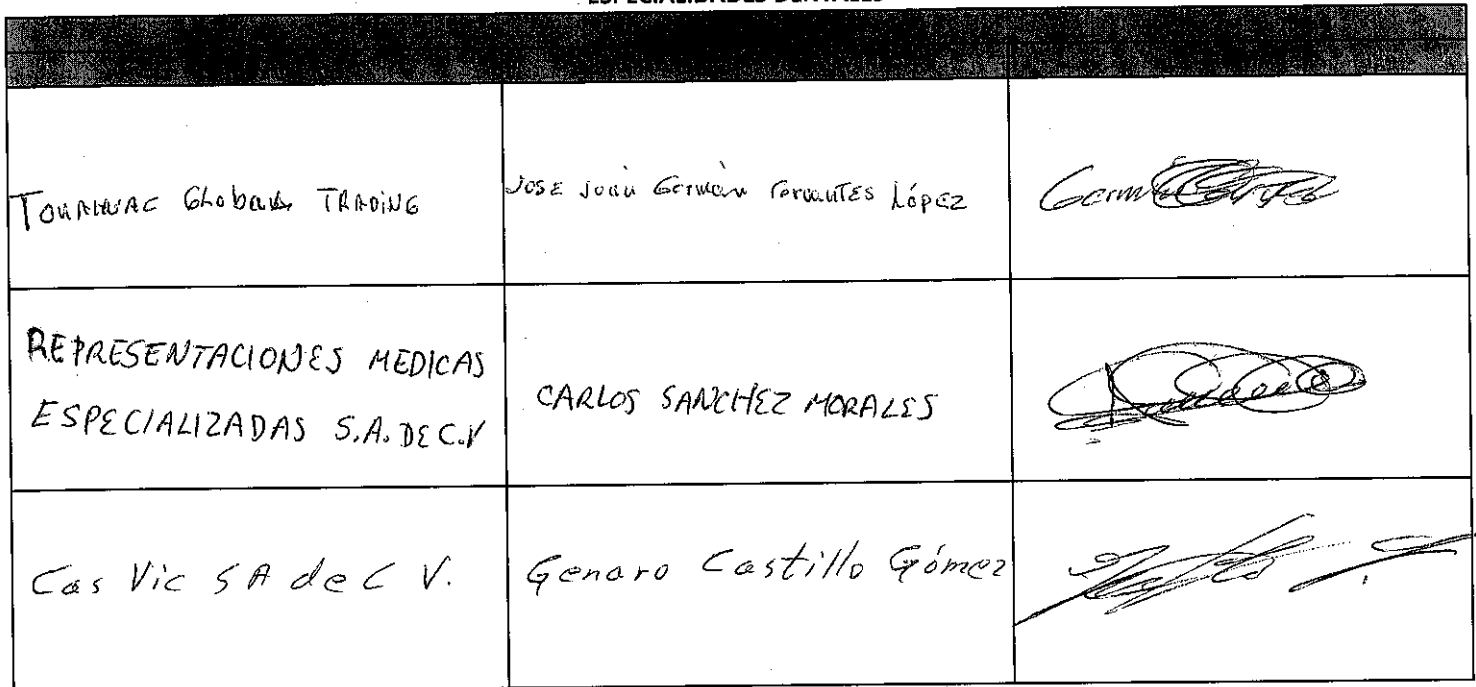 ESPECIALIDADES DENTALES
Global TRADING
JOSE Juan Germán Cervantes López
REPRESENTACIONES MEDICAS
ESPECIALIZADAS S.A. DE C.V
CARLOS SANCHEZ MORALES
Cas Vic SA de C V.
Genaro Castillo Gómez